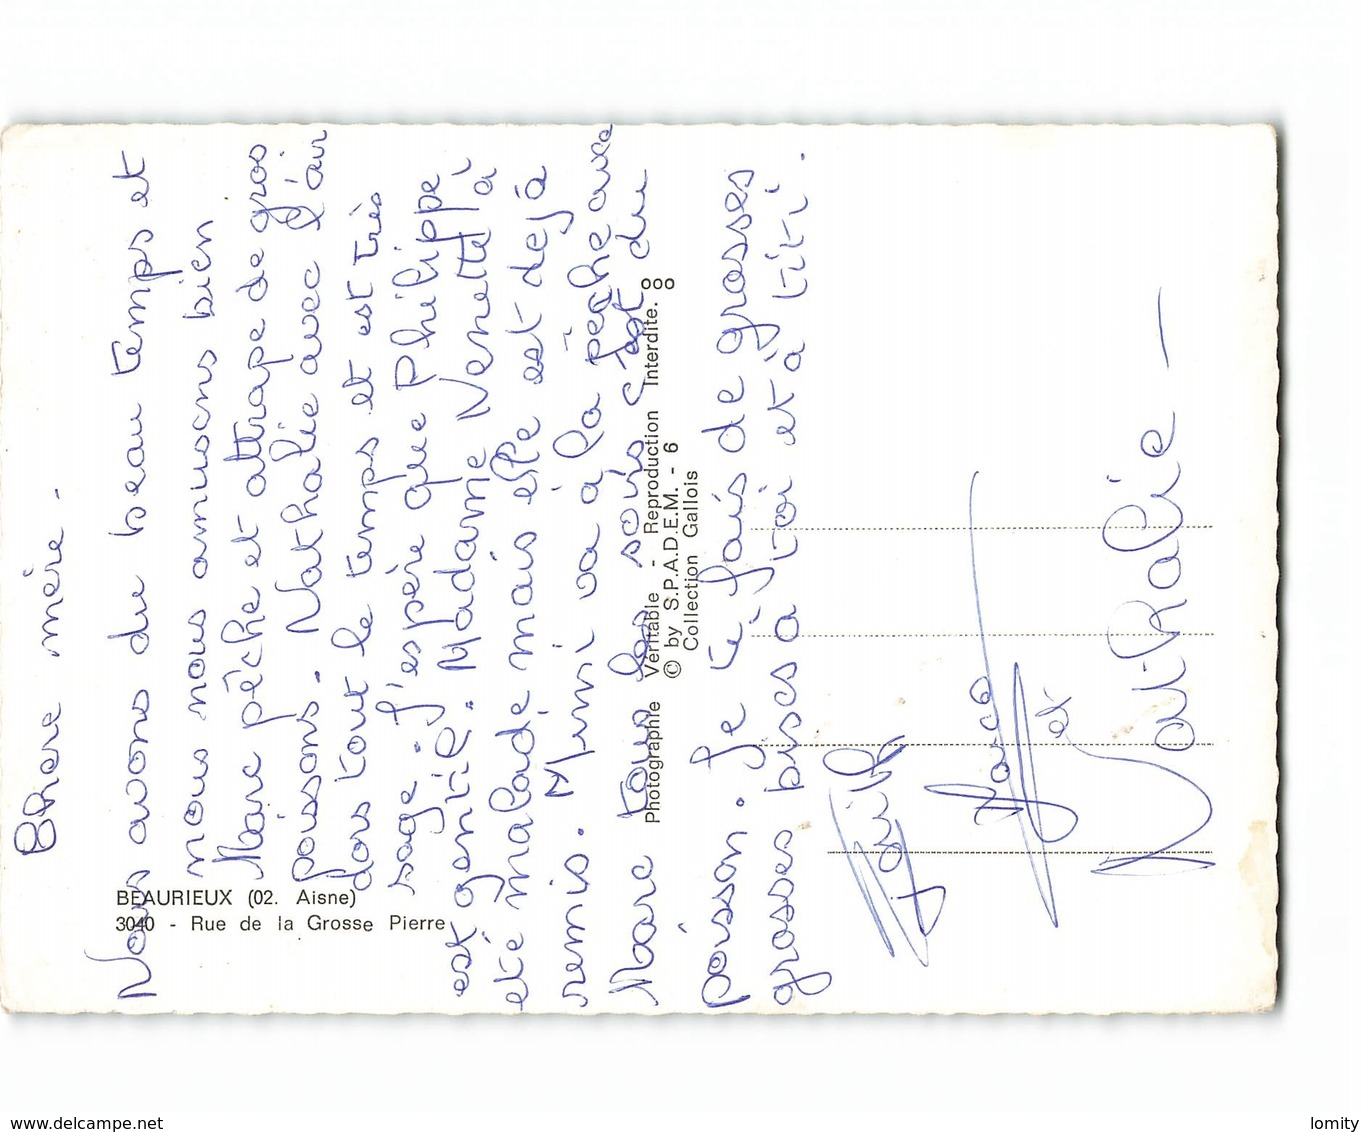 Chere mère.
Nous avons du beau temps et
nous nous amusons bien
Marc pêche et attrape de gros
poissons. Nathalie avec l'air
dors tout le temps et est très
sage. J'espère que Philippe
est gentil. Madame Venette à
eté malade mais elle est dejà
remis. Mimi va à la pêche avec
Marc tous les soirs c'est du
poisson. Je te fais de grosses
grosses bises a toi et à titi.
Marc
et
Nathalie
BEAURIEUX (02. Aisne)
3040 - Rue de la Grosse Pierre
Photographie Véritable - Reproduction Interdite.
© by S.P.A.D.E.M. - 6
Collection Gallois
www.delcampe.net
lomity